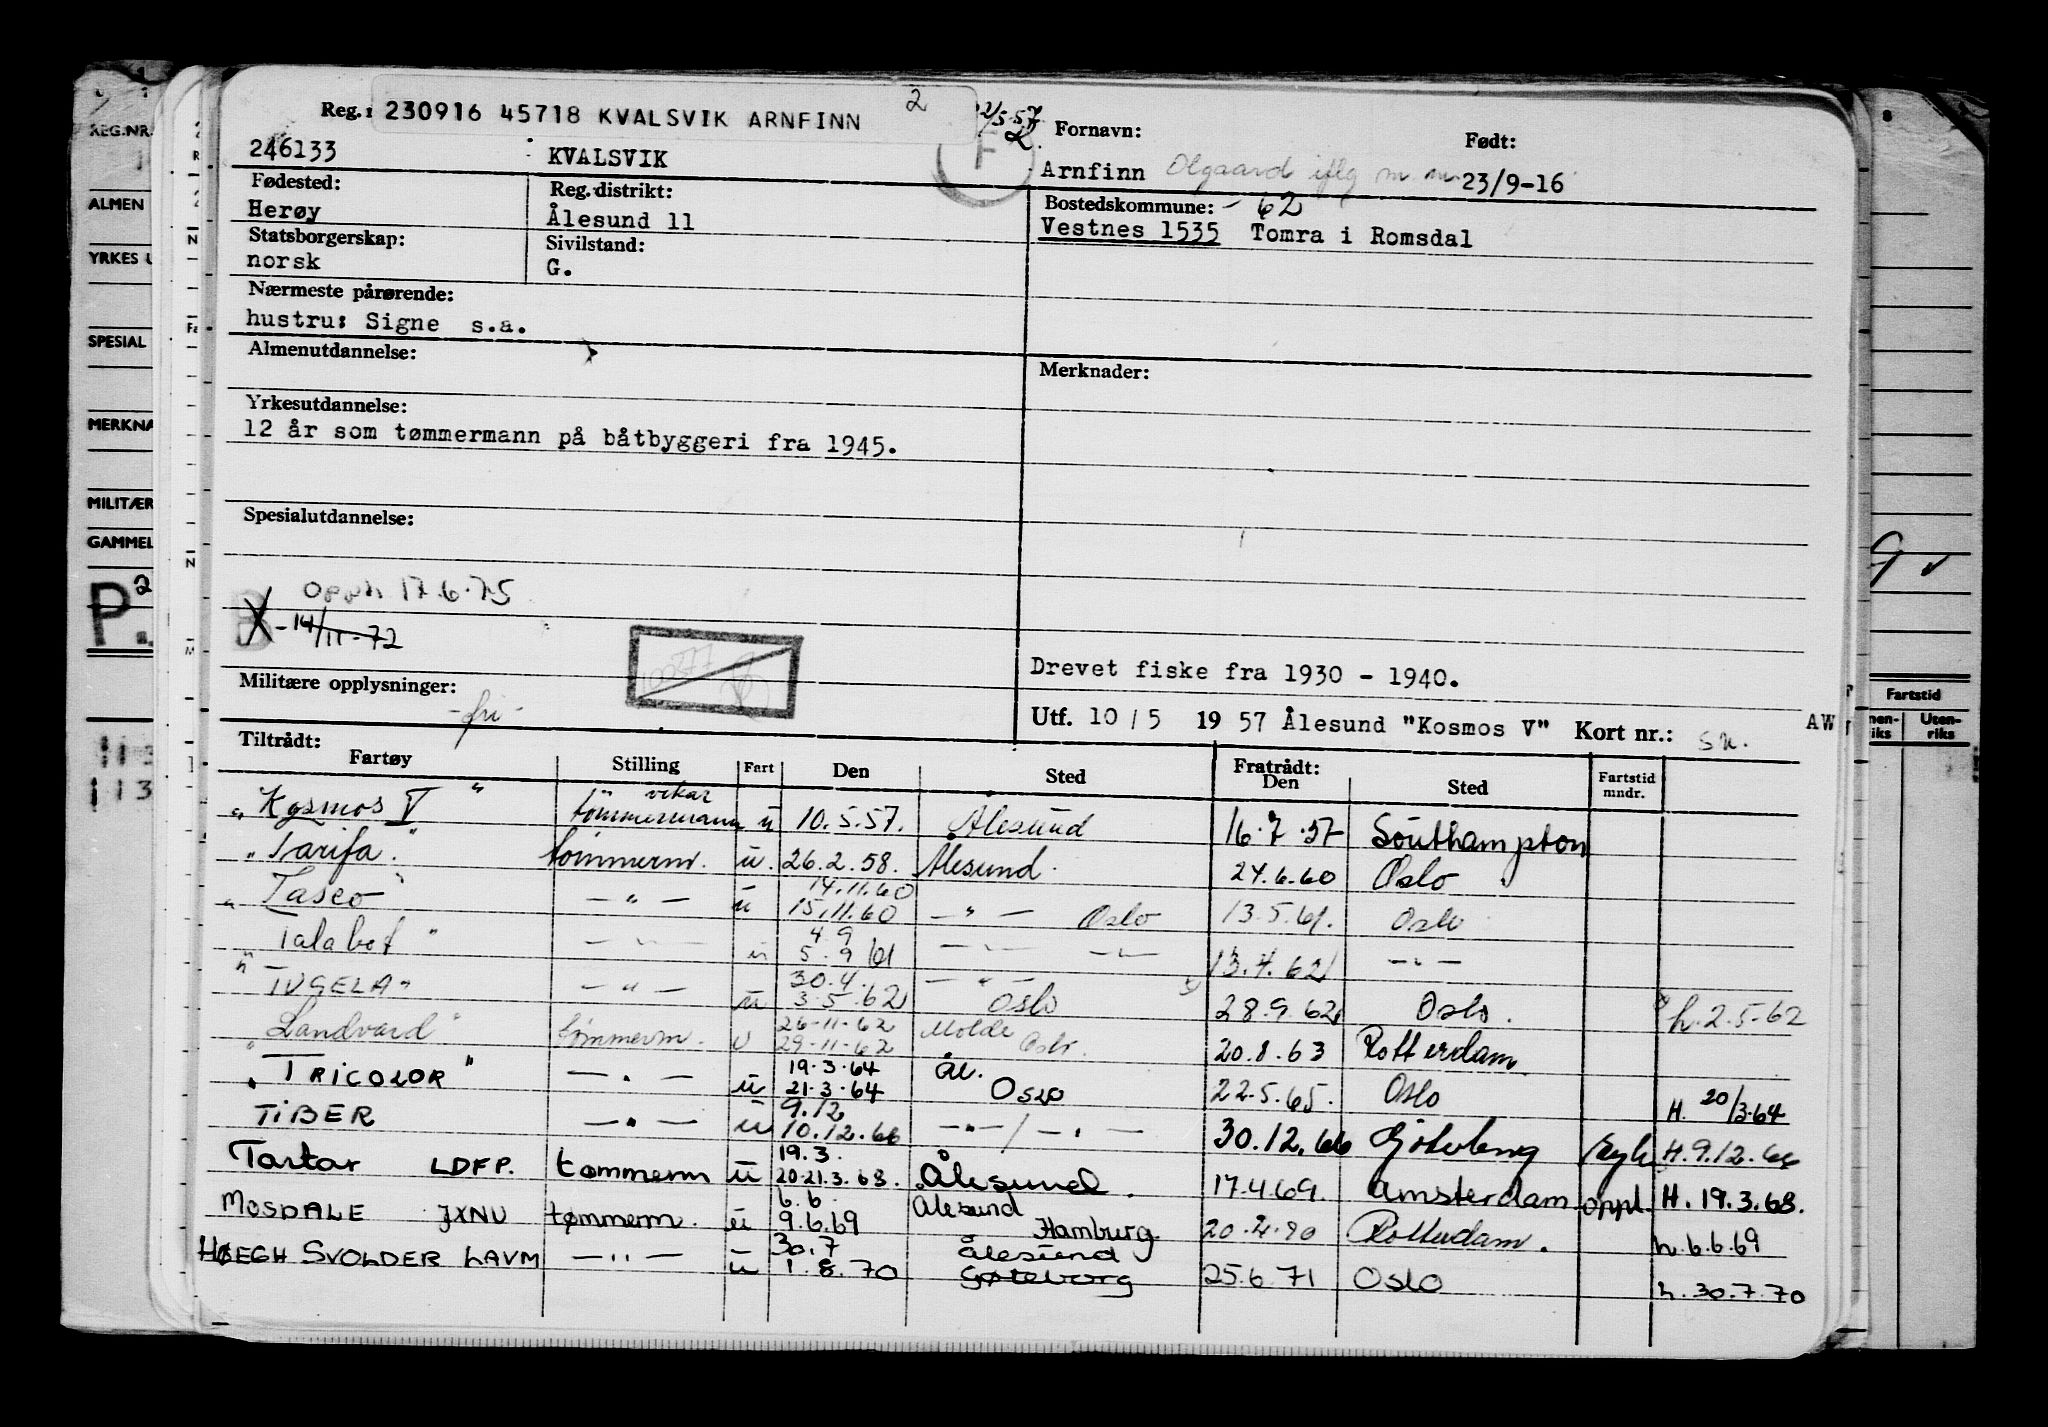 Reg. 230916 45718 KVALSVIK ARNFINN 2
2/5.57 Fornavn: Født:
246133 KVALSVIK F Arnfinn Olgaard iflg m m 23/9-16
Fødested: Reg.distrikt: Bostedskommune: - 62
Herøy Ålesund 11 Vestnes 1535 Tomra i Romsdal
Statsborgerskap: Sivilstand:
norsk G.
Nærmeste pårørende:
hustru: Signe s.a.
Almenutdannelse: Merknader:
Yrkesutdannelse:
12 år som tømmermann på båtbyggeri fra 1945.
Spesialutdannelse:
opph 17.6.75
X - 14/11-72
Drevet fiske fra 1930 - 1940.
Militære opplysninger: - fri -
Utf. 10/5 1957 Ålesund "Kosmos V" Kort nr.: AW
Tiltrådt: Fratrådt:
Fartøy Stilling Fart Den Sted Den Sted Fartstid mndr.
"Kosmos V" vikar tömmermann u 10.5.57. Ålesund 16.7.57 Southampton
"Tarifa." tömmerm. u. 26.2.58. Ålesund. 24.6.60 Oslo
"Tasco" — " — u 14.11.60 15.11.60 — " — Oslo 13.5.61. Oslo
"Talabot" — " — u 4.9 5.9 61 — " — — " — 13.4.62 — " —
"TUGELA" — " — u 30.4. 3.5.62 — " — Oslo 28.9.62 Oslo. h.2.5-62
"Landvard" tömmerm. u 26-11-62 29-11-62 Molde Oslo. 20.8.63 Rotterdam
"TRICOLOR" — " — u 19.3.64 21.3.64 Ål. Oslo 22.5.65. Oslo H. 20/3-64
TIBER — " — u 9.12 10.12.66 — " — / — " — 30.12.66 Göteborg syk H.9.12.66
Tartar LDFP. tømmerm u 19.3. 20-21.3.68. Ålesund. 17.4.69. Amsterdam oppl. H. 19.3.68.
MOSDALE JXNU tømmerm. u 6.6. 9.6.69 Ålesund Hamburg. 20.4.70 Rotterdam. h.6.6.69
HØEGH SVOLDER LAVM — " — u 30.7 1.8.70 Ålesund Gøteborg 25.6.71 OSLO h. 30.7.70
REG.NR.
ALMEN
YRKES U
SPESIAL
MERKNA
MILITÆR
GAMMEL
P 2
Fartstid
Uten-riks